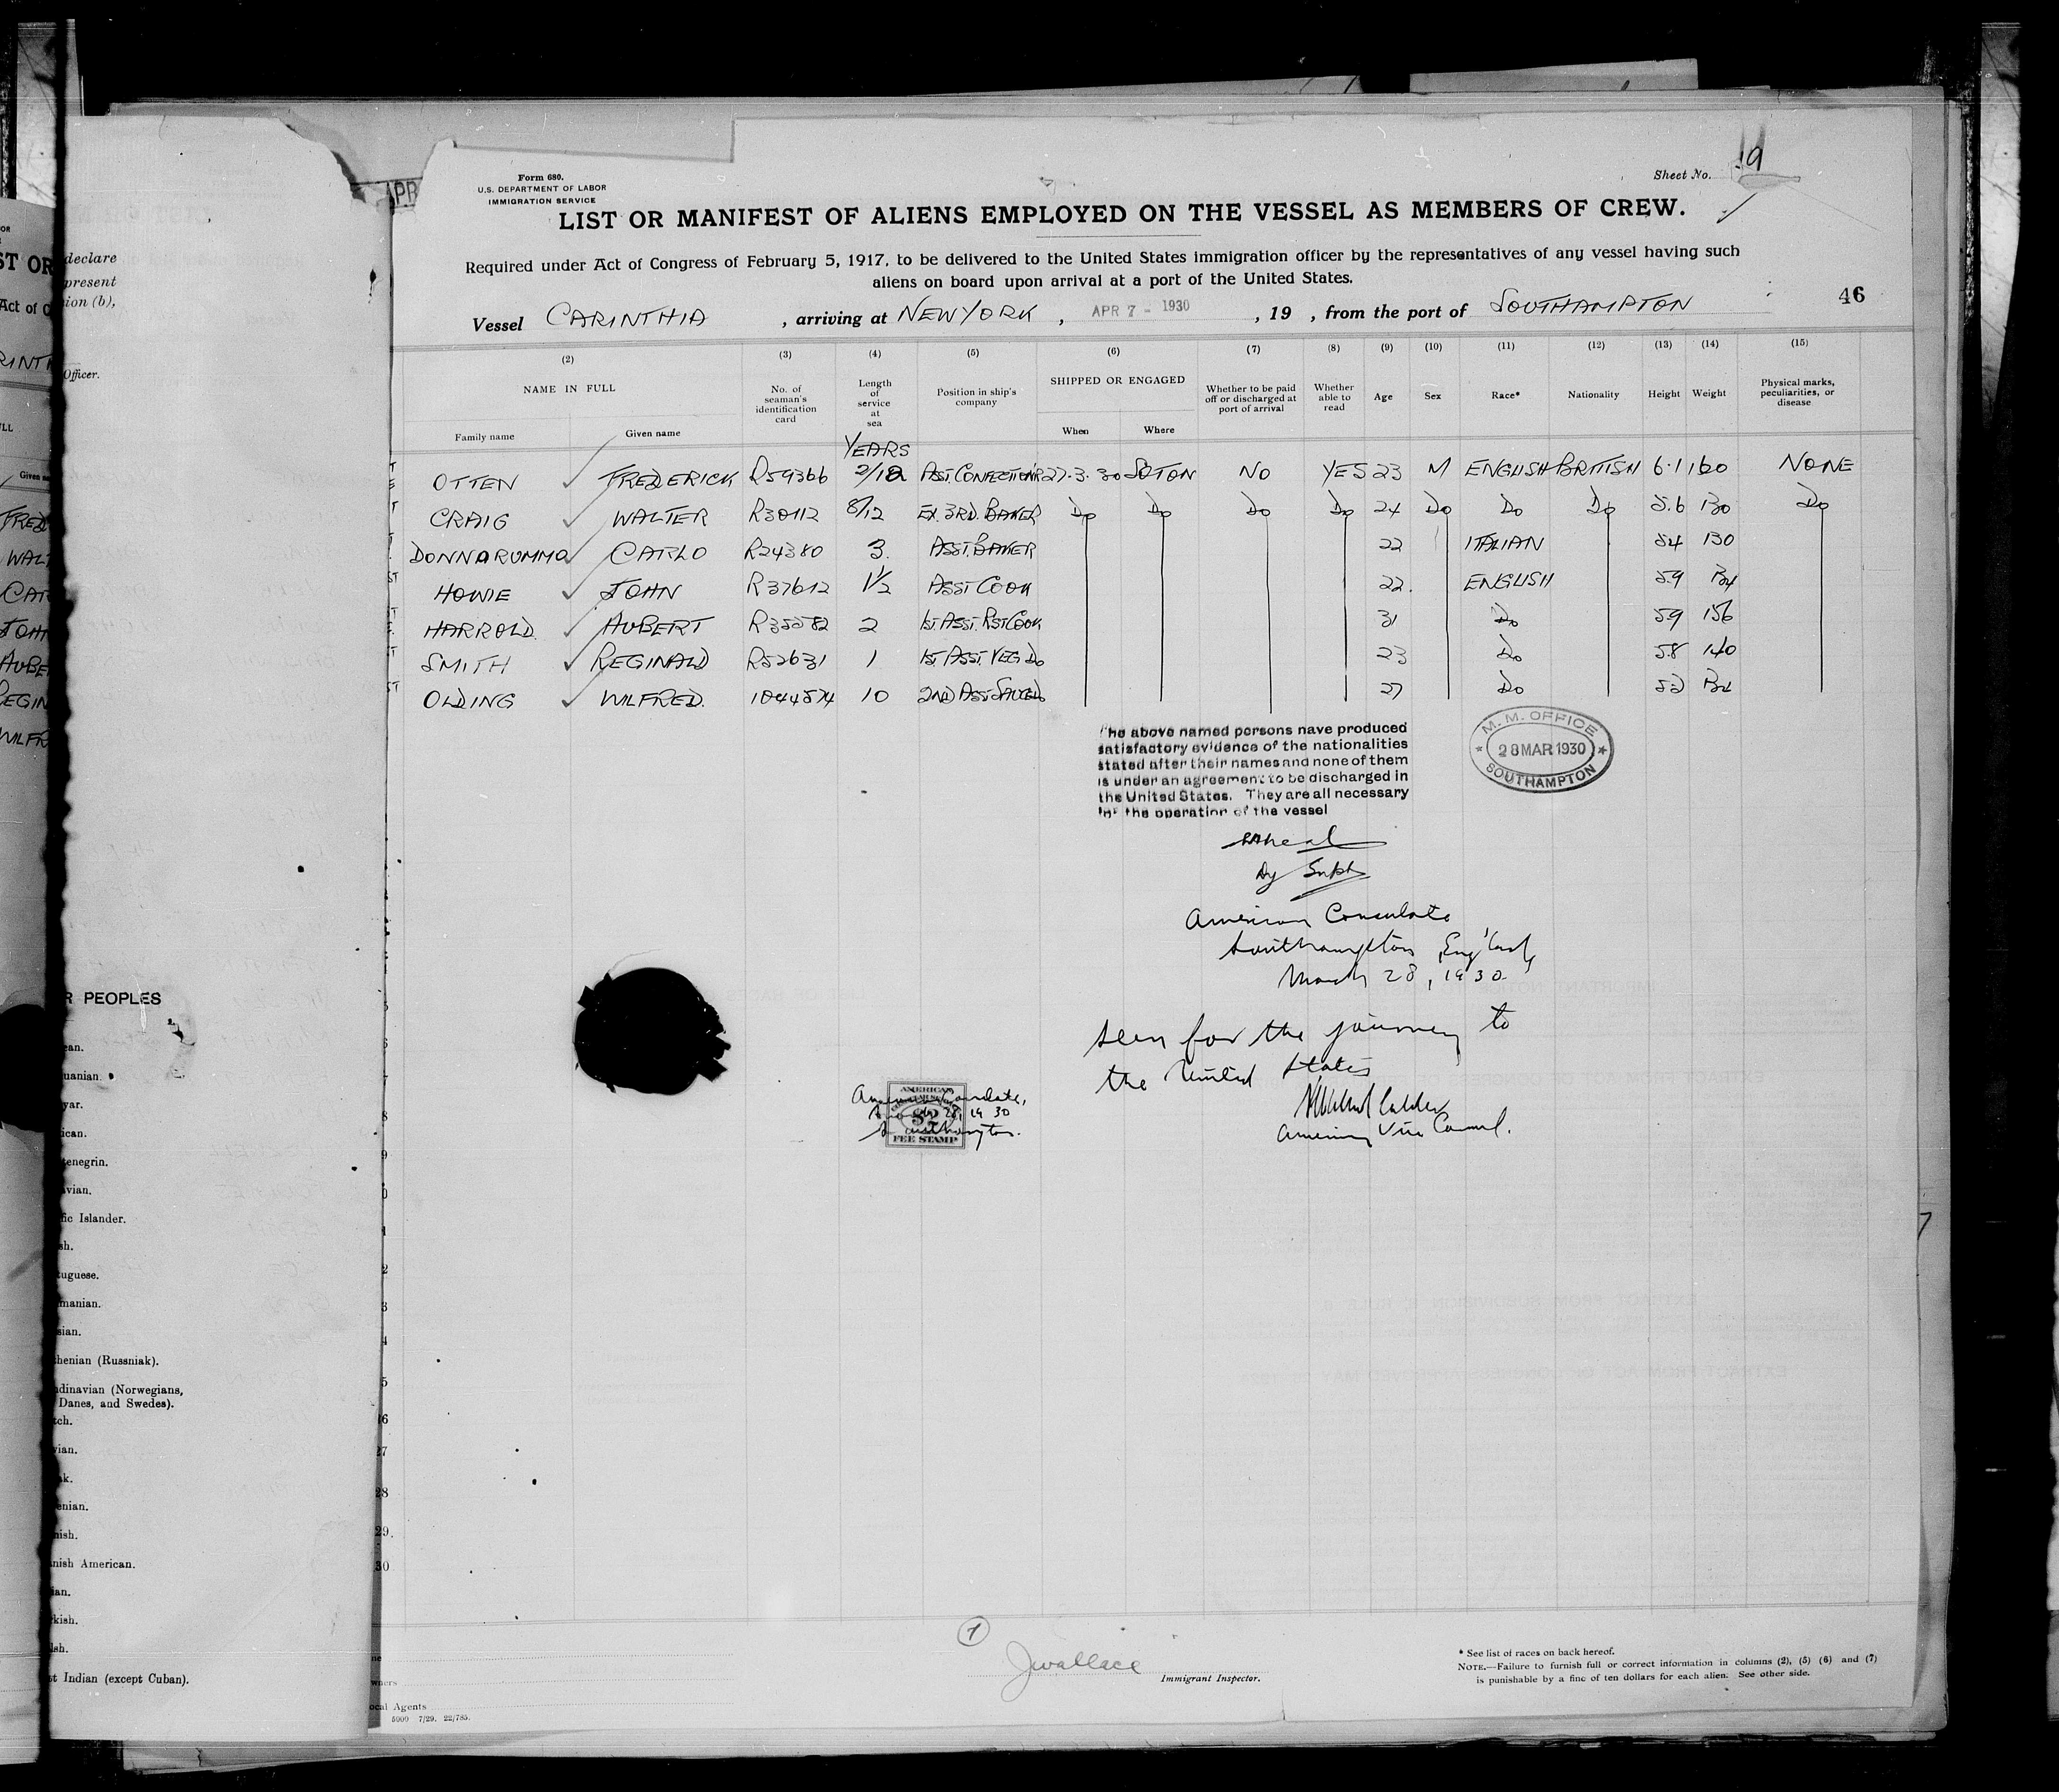 Form 680.
U.S. DEPARTMENT OF LABOR
IMMIGRATION SERVICE
Sheet No. 19
LIST OR MANIFEST OF ALIENS EMPLOYED ON THE VESSEL AS MEMBERS OF CREW.
Required under Act of Congress of February 5, 1917, to be delivered to the United States immigration officer by the representatives of any vessel having such
aliens on board upon arrival at a port of the United States.
46
Vessel CARINTHIA , arriving at NEW YORK , APR 7 - 1930 , 19 , from the port of SOUTHAMPTON
(2) (3) (4) (5) (6) (7) (8) (9) (10) (11) (12) (13) (14) (15)
NAME IN FULL No. of seaman's identification card Length of service at sea Position in ship's company SHIPPED OR ENGAGED Whether to be paid off or discharged at port of arrival Whether able to read Age Sex Race* Nationality Height Weight Physical marks, peculiarities, or disease
Family name Given name When Where
YEARS
OTTEN FREDERICK R59366 2/12 ASST. CONFECTION'R 27.3.30 SOTON NO YES 23 M ENGLISH BRITISH 6.1 160 NONE
CRAIG WALTER R30112 8/12 EX. 3RD. BAKER Do Do Do Do 24 Do Do Do 5.6 130 Do
DONNARUMMA CARLO R24380 3. ASST. BAKER 22 ITALIAN 5.4 130
HOWIE JOHN R37612 1½ ASST COOK 22. ENGLISH 5.9
HARROLD. HUBERT R35582 2 1ST. ASST. RST COOK 31 Do 5.9 156
SMITH REGINALD R52631 1 1ST ASST. VEG Do 23 Do 5.8 140
OLDING WILFRED. 1044574 10 2ND ASST 27 Do
The above named persons have produced
satisfactory evidence of the nationalities
stated after their names and none of them
is under an agreement to be discharged in
the United States. They are all necessary
for the operation of the vessel
M. M. OFFICE
28 MAR 1930
SOUTHAMPTON
Dy Supt
American Consulate
Southampton, England,
March 28, 1930.
Seen for the journey to
the United States
American Vice Consul.
American Consulate,
March 28, 1930
Southampton.
AMERICAN
$2
FEE STAMP
28
29.
30
1
J Wallace
Immigrant Inspector.
* See list of races on back hereof.
NOTE.—Failure to furnish full or correct information in columns (2), (5) (6) and (7)
is punishable by a fine of ten dollars for each alien. See other side.
5000 7/29. 22/785.
declare
present
Officer.
R PEOPLES
fic Islander.
henian (Russniak).
dinavian (Norwegians,
Danes, and Swedes).
nish American.
t Indian (except Cuban).
ocal Agents